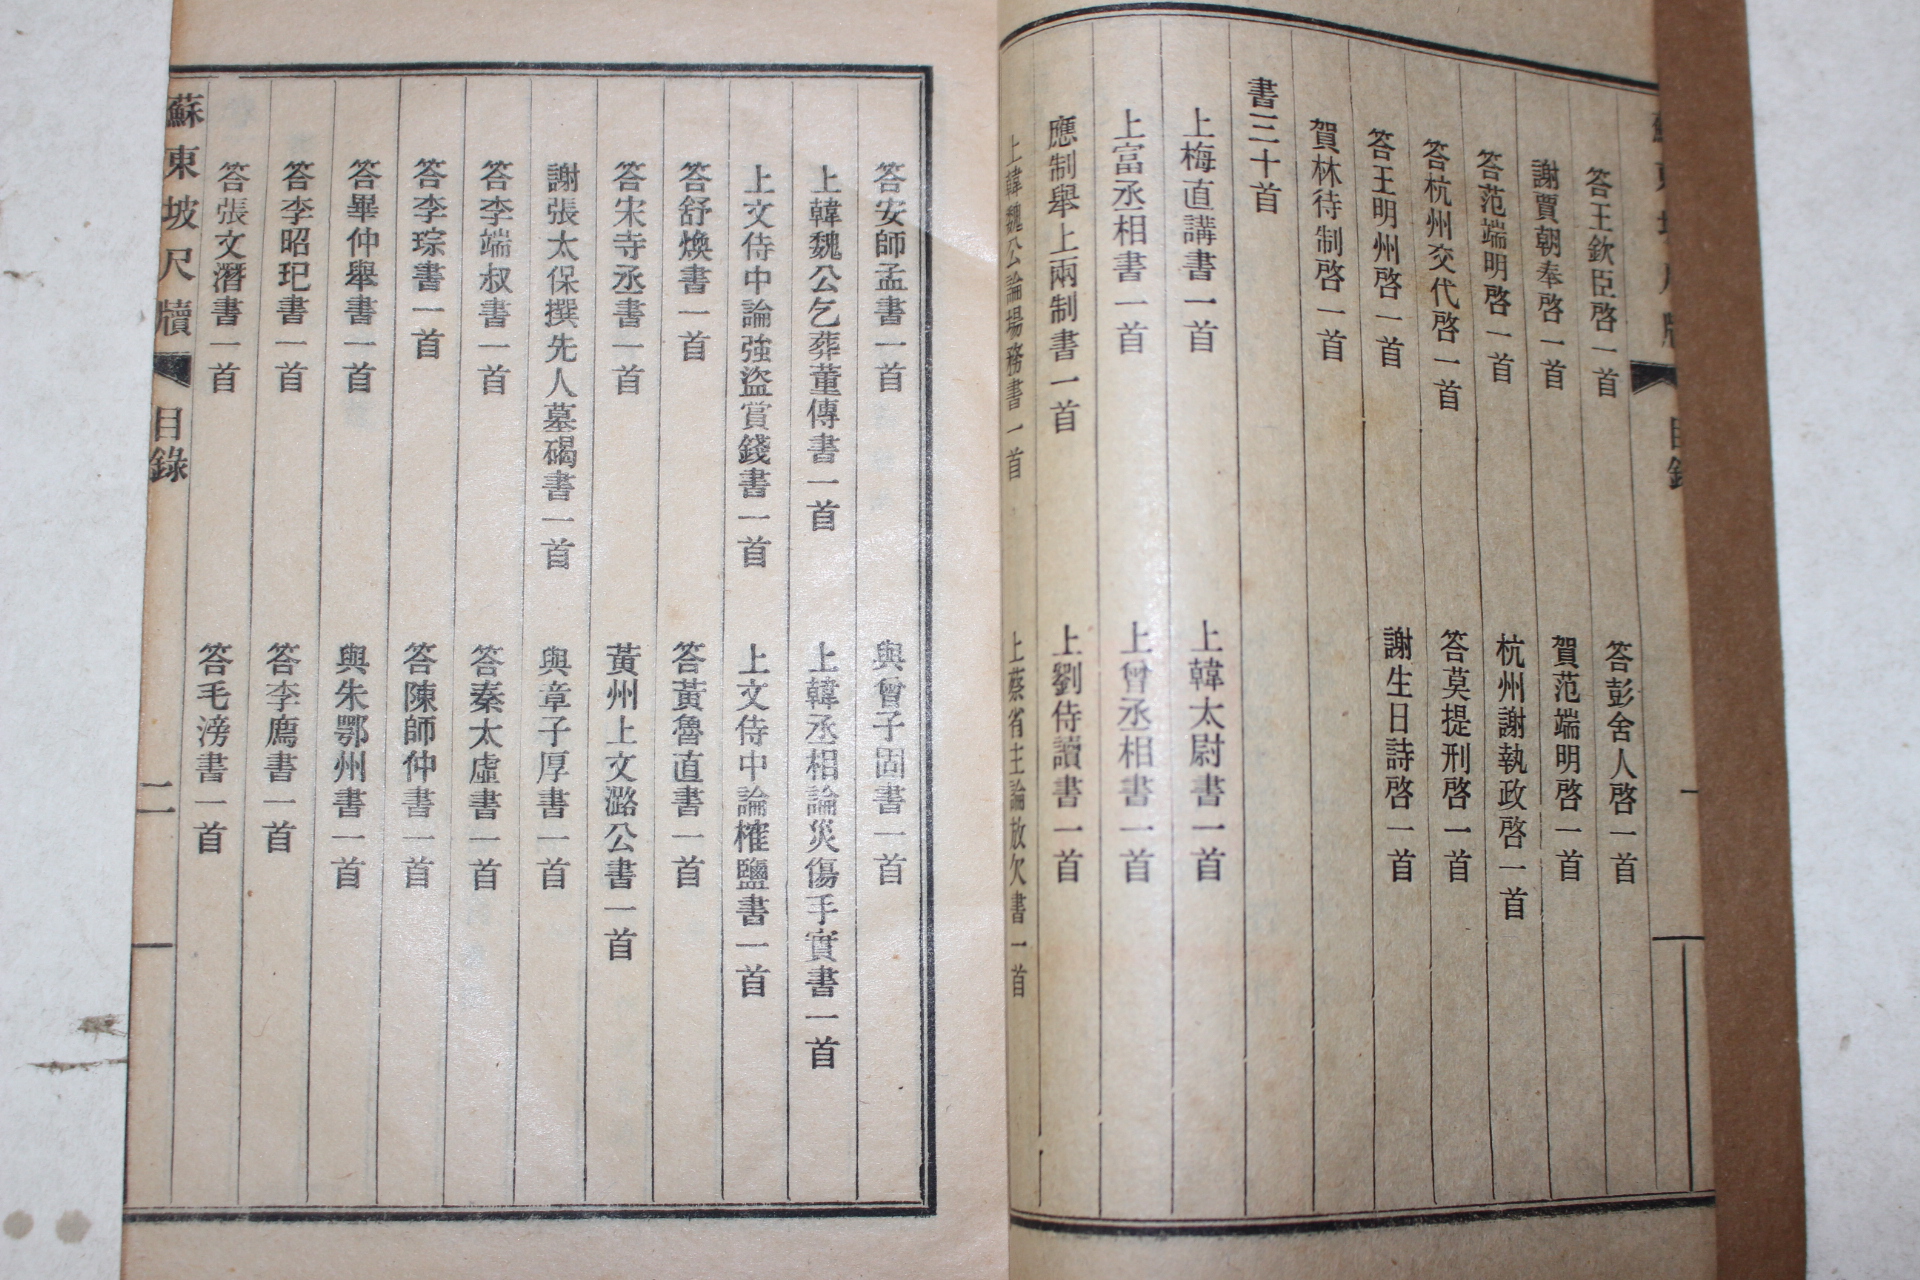 目錄
一
答王欽臣啓一首　答彭舍人啓一首
謝賈朝奉啓一首　賀范端明啓一首
答范端明啓一首　杭州謝執政啓一首
答杭州交代啓一首　答莫提刑啓一首
答王明州啓一首　謝生日詩啓一首
賀林待制啓一首
書三十首
上梅直講書一首　上韓太尉書一首
上富丞相書一首　上曾丞相書一首
應制舉上兩制書一首　上劉侍讀書一首
上韓魏公論場務書一首　上蔡省主論放欠書一首
答安師孟書一首　與曾子固書一首
上韓魏公乞葬董傳書一首　上韓丞相論災傷手實書一首
上文侍中論強盜賞錢書一首　上文侍中論榷鹽書一首
答舒煥書一首　答黃魯直書一首
答宋寺丞書一首　黃州上文潞公書一首
謝張太保撰先人墓碣書一首　與章子厚書一首
答李端叔書一首　答秦太虛書一首
答李琮書一首　答陳師仲書一首
答畢仲舉書一首　與朱鄂州書一首
答李昭玘書一首　答李廌書一首
答張文潛書一首　答毛滂書一首
蘇東坡尺牘　目錄　二